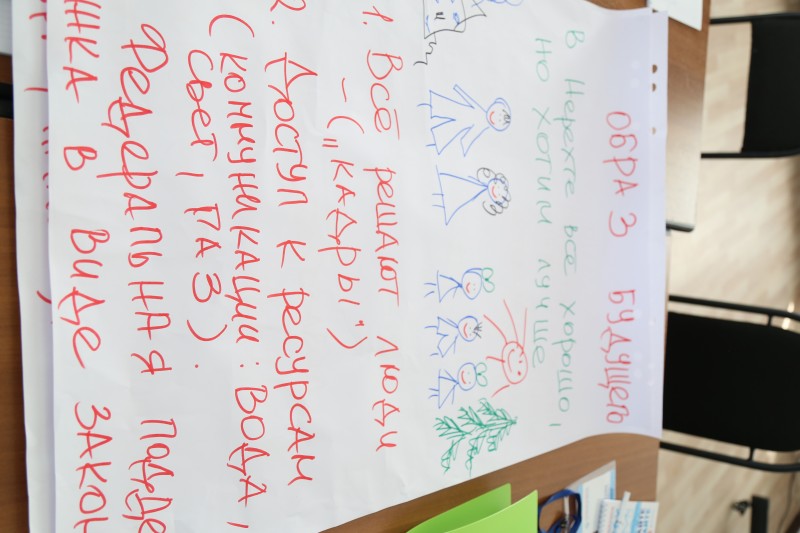 ОБРАЗ БУДУЩЕГО
В Нерехте всё хорошо,
но хотим лучше
1. Всё решают люди
– („КАДРЫ")
2. Доступ к ресурсам
(коммуникации: вода,
свет, газ).
Федеральная подде
жка в виде закон